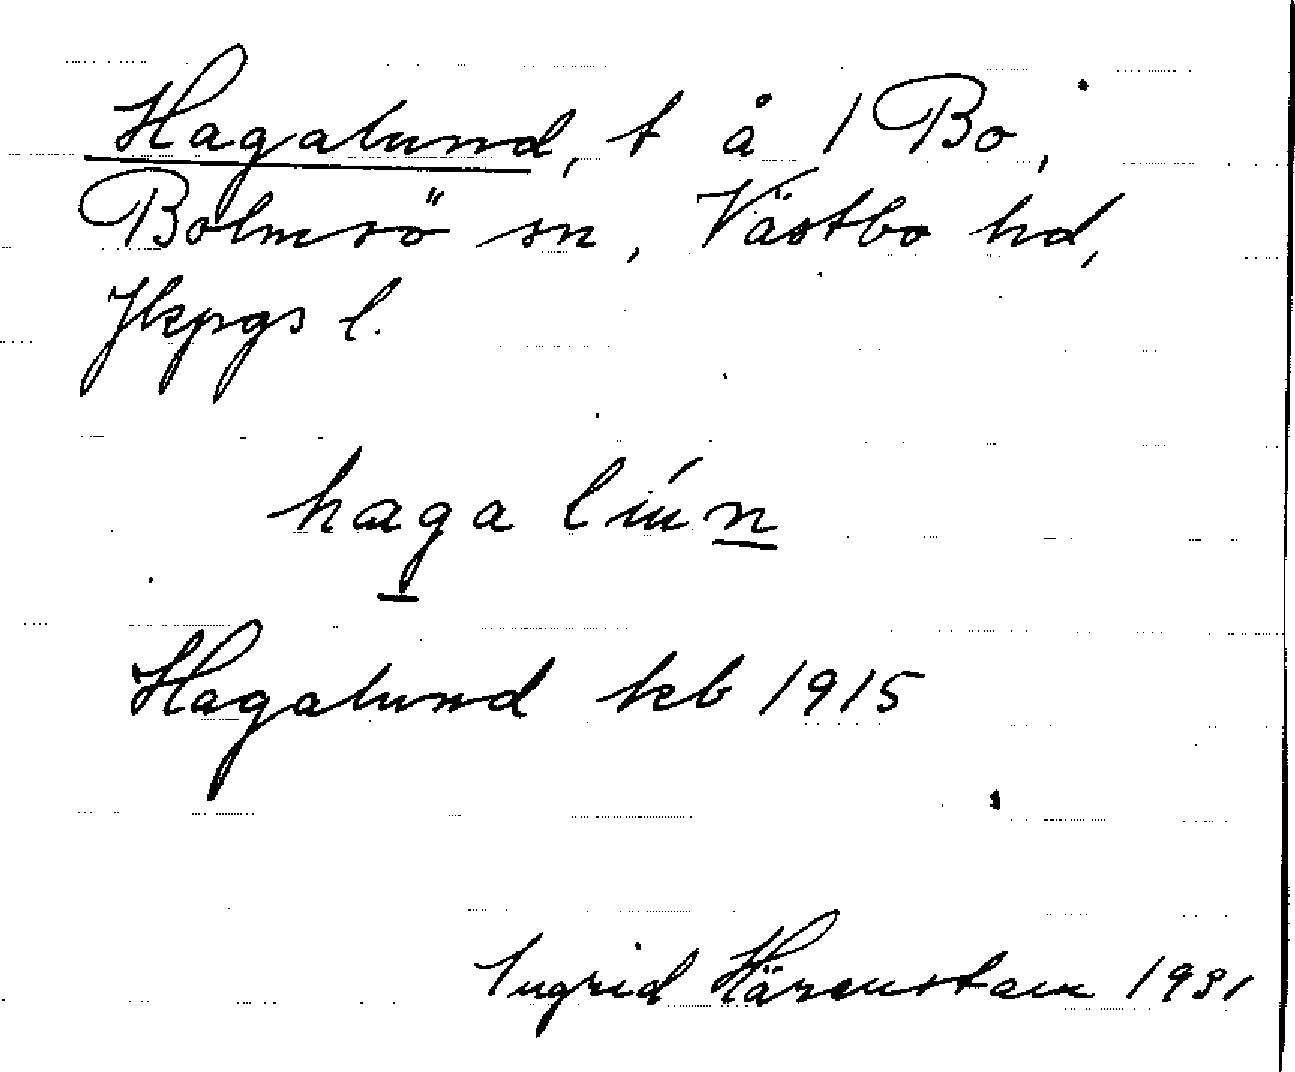 Hagalund, t å 1 Bo,
Bolmsö sn, Västbo hd,
Jkpgs l.
haga lúun
Hagalund kb 1915
Ingrid Härenstam 1931